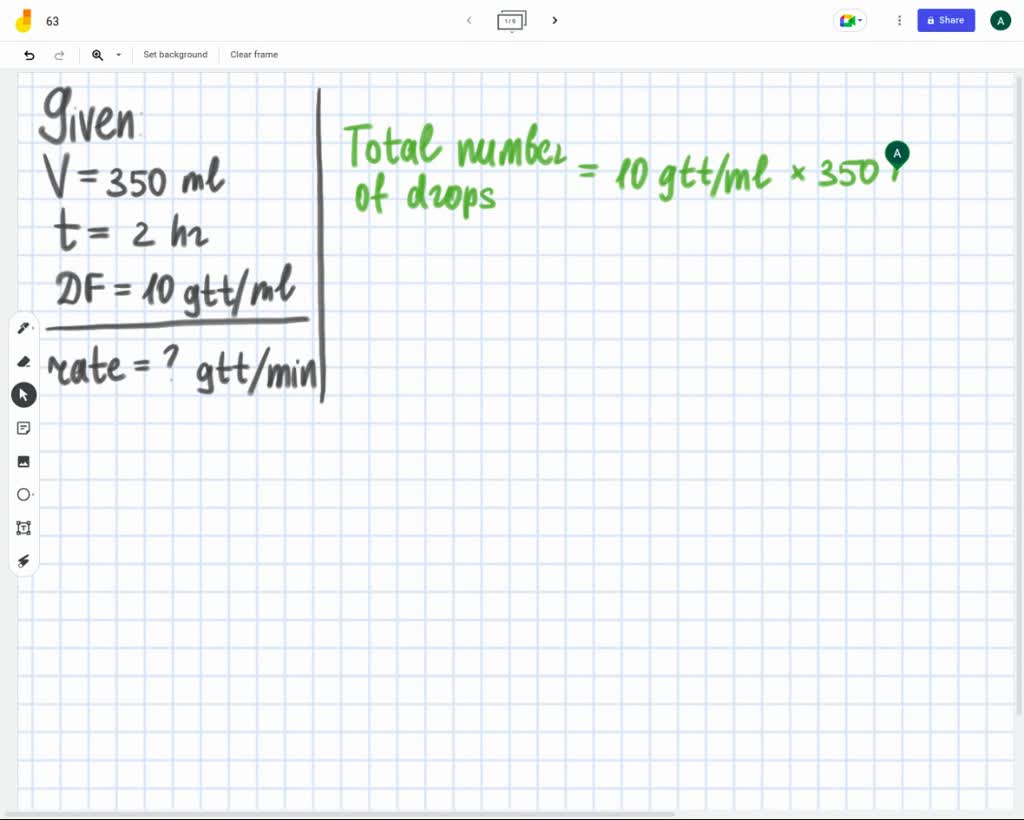 63
1/9
Share
A
Set background
Clear frame
Given:
V = 350 ml
t = 2 hr
DF = 10 gtt/ml
rate = ? gtt/min
Total number
of drops
= 10 gtt/ml × 350
A